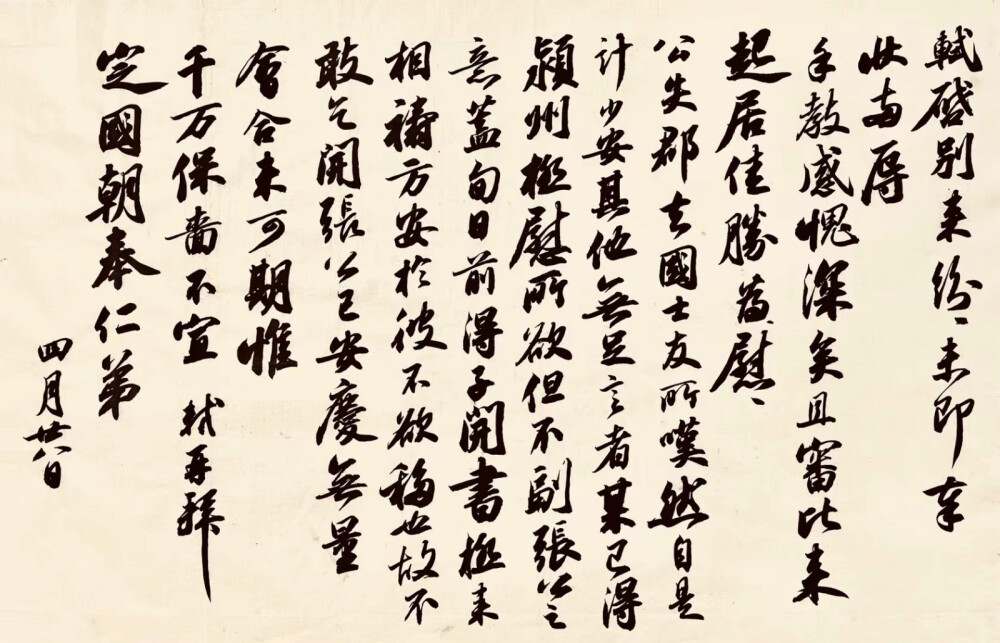 軾啓別來紛〻未即奉
狀兩辱
手教感愧深矣且審比來
起居佳勝為慰〻
公失郡去國士友所嘆然自是
計少安其他無足言者某已得
潁州極慰所欲但不副張公之
意蓋旬日前得子開書極來
相禱方安於彼不欲移也故不
敢乞開張公已安慶無量
會合未可期惟
千万保嗇不宣 軾再拜
定國朝奉仁弟
四月廿八日